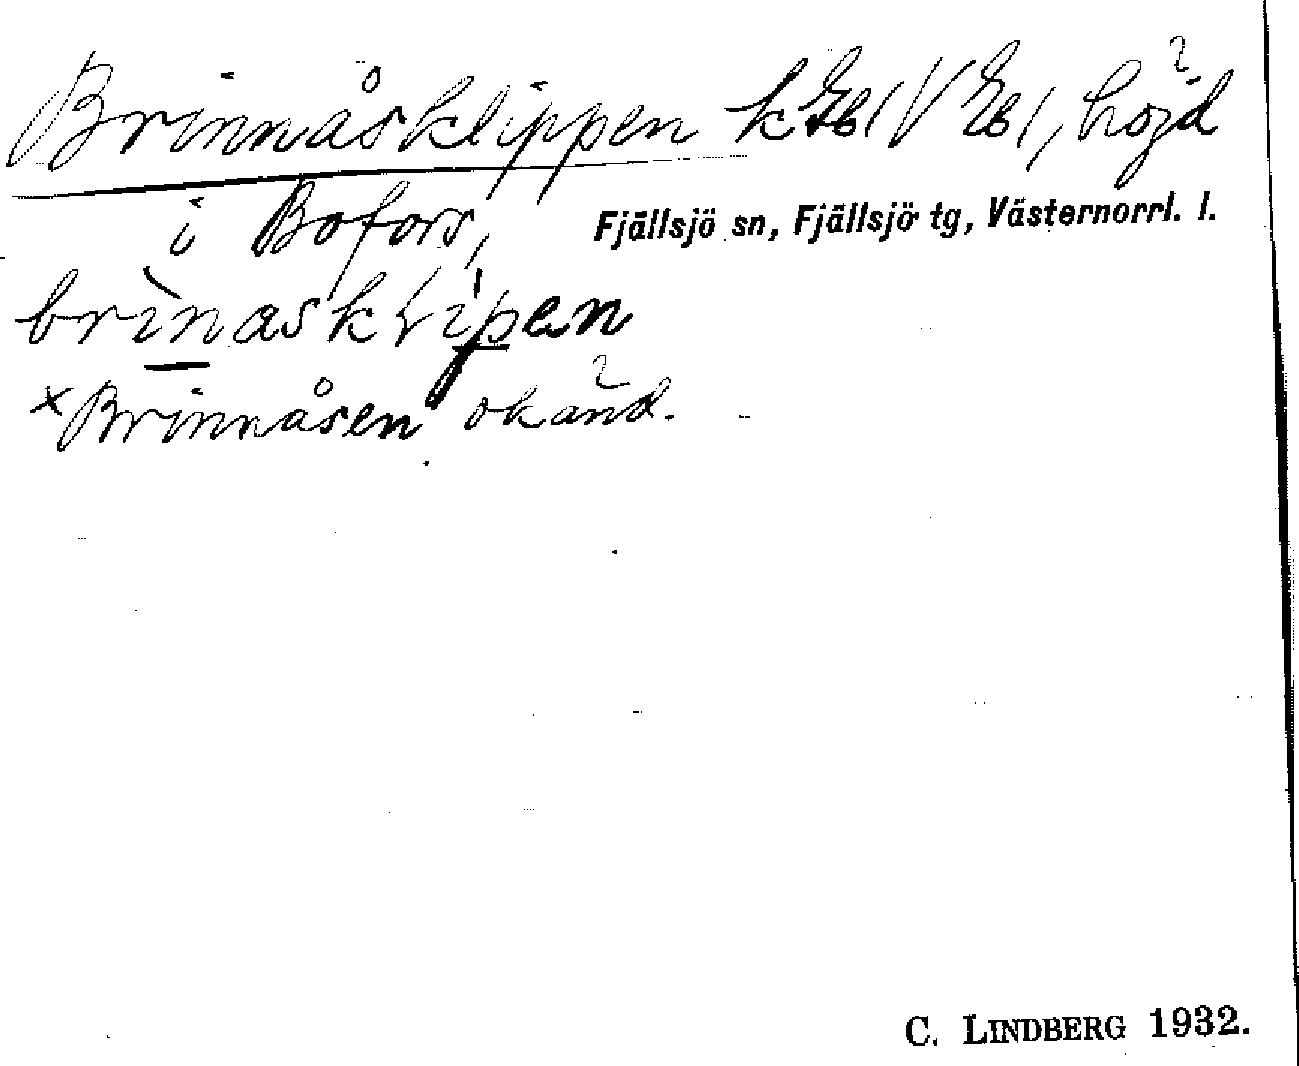 Brinnåsklippen k Eb/V Eb/, höjd
i Bofors, Fjällsjö sn, Fjällsjö tg, Västernorrl. l.
brìnaskḷipen
× Brinnåsen okänd.
C. LINDBERG 1932.